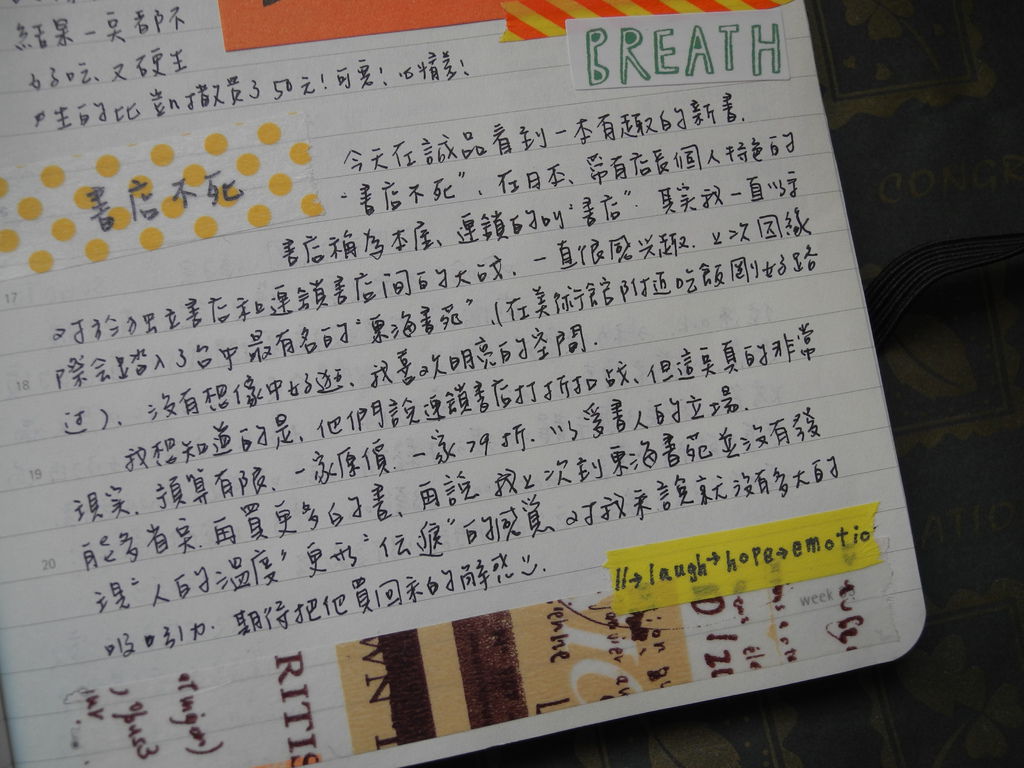 結果一點都不
好吃、又硬生
生的比 散買了50元！可惡！
BREATH
書店不死
今天在誠品看到一本有趣的新書.
"書店不死", 在日本、帶有店長個人特色的
書店稱為本屋、連鎖的叫"書店". 其實我一直以來
對於独立書店和連鎖書店间的大战, 一直很感兴趣. 上次因緣
際会踏入了台中最有名的"東海書苑" (在美術館附近吃飯剛好路
过). 沒有想像中好逛、我喜欢明亮的空間.
我想知道的是, 他們說連鎖書店打折扣战、但這点真的非常
現实. 預算有限、一家原價. 一家79折. 以爱書人的立場.
能多省点.再買更多的書、再說 我上次到東海書苑並沒有發
現"人的溫度"更形"伝遞"的感覺. 对我來說就沒有多大的
吸引力. 期待把他買回來的解惑
17
18
19
20
laugh→hope→emotio
week
RITIS
WN